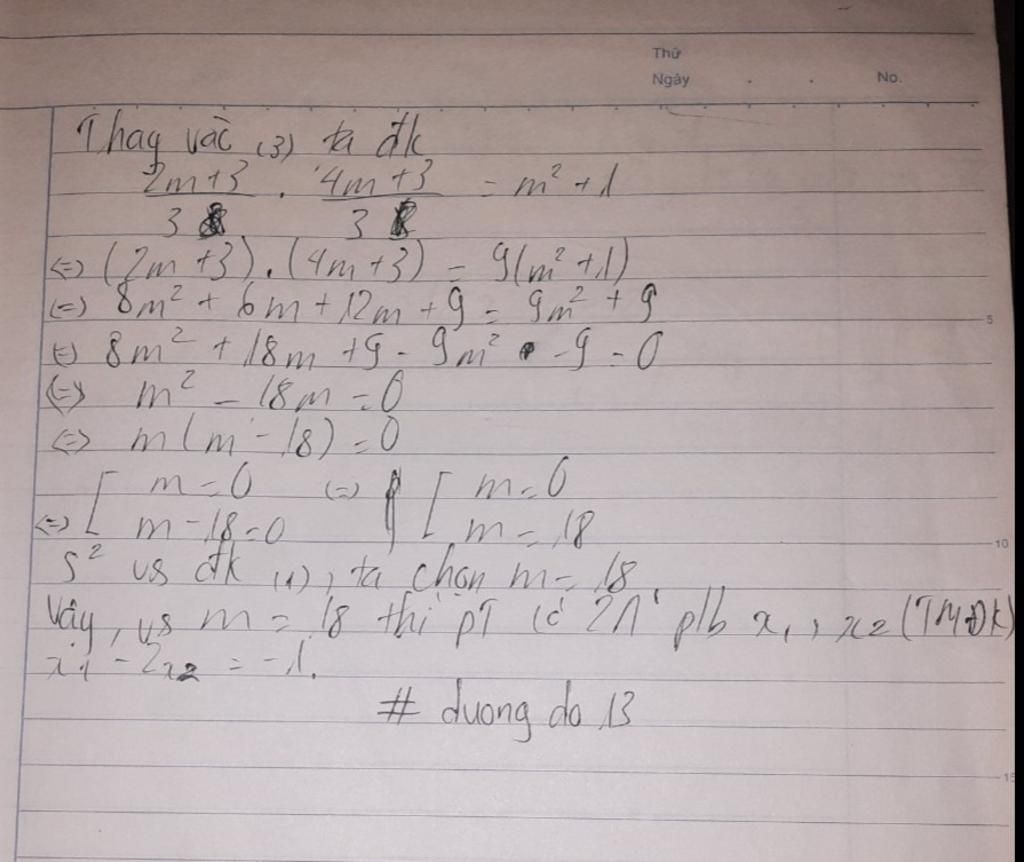 Thứ
Ngày . . No.
Thay vào (3) ta đk
2m+3 / 3 . 4m+3 / 3 = m² + 1
<=> (2m+3).(4m+3) = 9(m²+1)
<=> 8m² + 6m + 12m + 9 = 9m² + 9
<=> 8m² + 18m + 9 - 9m² - 9 = 0
<=> m² - 18m = 0
<=> m(m-18) = 0
<=> [ m = 0 <=> [ m = 0
m - 18 = 0 m = 18
S² vs đk (1), ta chọn m = 18
Vậy, vs m = 18 thì pT có 2n' plb x₁, x₂ (TMĐK)
x₁ - 2x₂ = -1.
# duong do 13
5
10
15